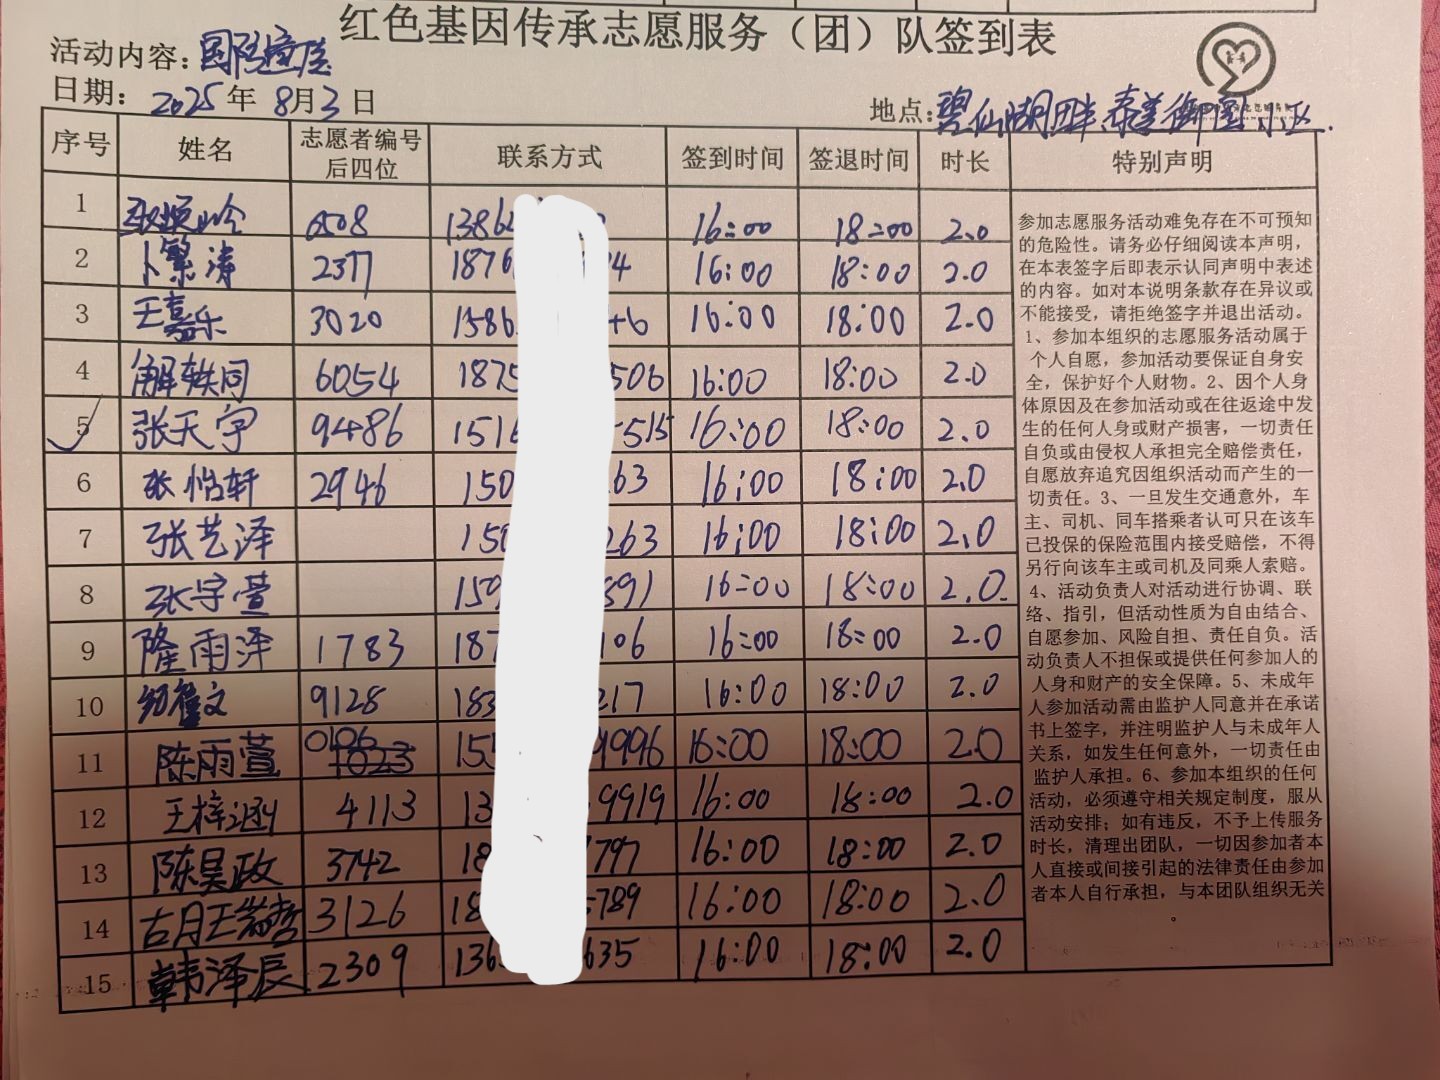 红色基因传承志愿服务（团）队签到表
活动内容：国防宣传
日期：2025年 8月3日
地点：碧仙湖畔 泰美御园小区.
序号 姓名 志愿者编号后四位 联系方式 签到时间 签退时间 时长 特别声明
1 6508 1386 16:00 18:00 2.0
2 卜繁涛 2377 1876 4 16:00 18:00 2.0
3 王嘉乐 3020 1586 46 16:00 18:00 2.0
4 解轶同 6054 1875 506 16:00 18:00 2.0
5 张天宇 9486 1516 515 16:00 18:00 2.0
6 张怡轩 2946 150 63 16:00 18:00 2.0
7 张艺泽 150 263 16:00 18:00 2.0
8 张宇萱 159 891 16:00 18:00 2.0
9 隆雨泽 1783 187 106 16:00 18:00 2.0
10 9128 183 217 16:00 18:00 2.0
11 陈雨萱 0106 155 9996 16:00 18:00 2.0
12 王梓涵 4113 13 9919 16:00 18:00 2.0
13 陈昊政 3742 18 797 16:00 18:00 2.0
14 胡 3126 18 789 16:00 18:00 2.0
15 韩泽辰 2309 136 635 16:00 18:00 2.0
参加志愿服务活动难免存在不可预知
的危险性。请务必仔细阅读本声明，
在本表签字后即表示认同声明中表述
的内容。如对本说明条款存在异议或
不能接受，请拒绝签字并退出活动。
1、参加本组织的志愿服务活动属于
个人自愿，参加活动要保证自身安
全，保护好个人财物。2、因个人身
体原因及在参加活动或在往返途中发
生的任何人身或财产损害，一切责任
自负或由侵权人承担完全赔偿责任，
自愿放弃追究因组织活动而产生的一
切责任。3、一旦发生交通意外，车
主、司机、同车搭乘者认可只在该车
已投保的保险范围内接受赔偿，不得
另行向该车主或司机及同乘人索赔。
4、活动负责人对活动进行协调、联
络、指引，但活动性质为自由结合、
自愿参加、风险自担、责任自负。活
动负责人不担保或提供任何参加人的
人身和财产的安全保障。5、未成年
人参加活动需由监护人同意并在承诺
书上签字，并注明监护人与未成年人
关系，如发生任何意外，一切责任由
监护人承担。6、参加本组织的任何
活动，必须遵守相关规定制度，服从
活动安排；如有违反，不予上传服务
时长，清理出团队，一切因参加者本
人直接或间接引起的法律责任由参加
者本人自行承担，与本团队组织无关
。